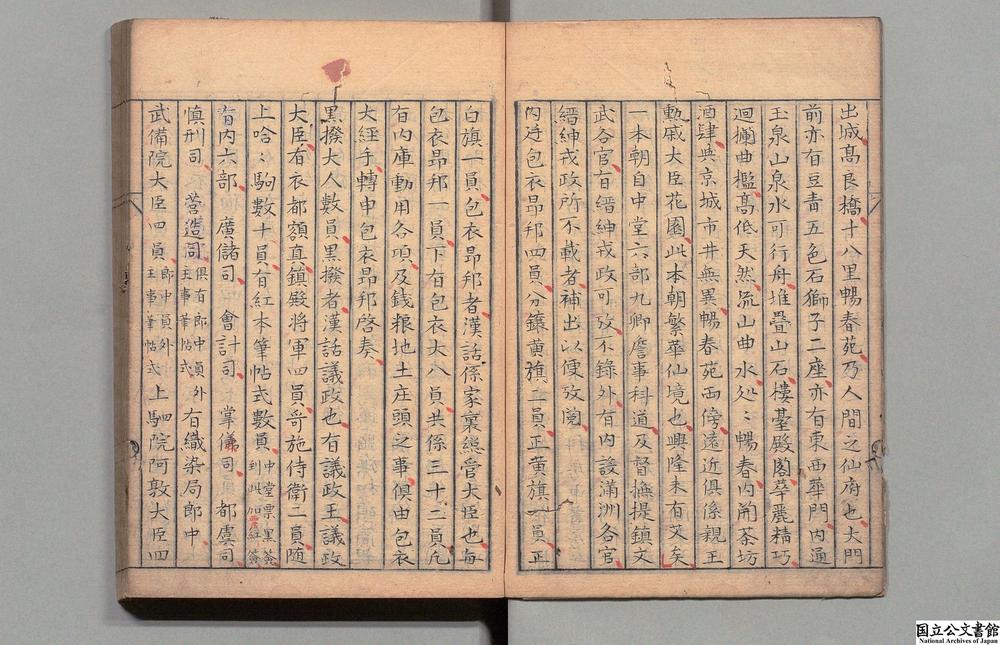 出城高良橋十八里暢春苑乃人間之仙府也大門
前亦有豆青五色石獅子二座亦有東西華門內通
玉泉山泉水可行舟堆疊山石樓臺殿閣華麗精巧
迴攔曲檻高低天然流山曲水処〻暢春內開茶坊
酒肆與京城市井無異暢春苑西傍遠近俱係親王
勳戚大臣花園此本朝繁華仙境也興隆未有艾矣
一本朝自中堂六部九卿詹事科道及督撫提鎮文
武各官有縉紳戎政可攷不錄外有內設滿洲各官
縉紳戎政所不載者補出以便攷閱
內廷包衣昂邦四員分鑲黃旗二員正黃旗一員正
白旗一員包衣昂邦者漢話係家裏總管大臣也每
包衣昂邦一員下有包衣大八員共係三十二員凢
有內庫動用各項及錢粮地土庄頭之事俱由包衣
大經手轉申包衣昂邦啓奏
黑撥大人數員黑撥者漢話議政也有議政王議政
大臣有衣都額真鎮殿將軍四員奇施侍衛二員隨
上哈〻駒數十員有紅本筆帖式數員中堂票黑簽
到此加紅簽
有內六部 廣儲司 會計司 掌儀司 都虞司
慎刑司 營造司俱有郎中員外
主事筆帖式有織染局郎中
武備院大臣四員郎中員外
主事筆帖式上駟院阿敦大臣四
国立公文書館
National Archives of Japan